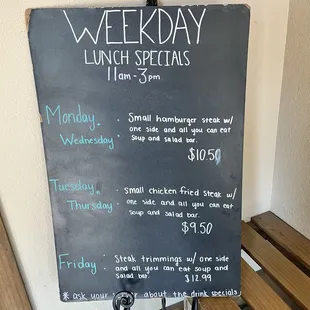 WEEKDAY
LUNCH SPECIALS
11am - 3pm
Monday
Wednesday
Small hamburger steak w/
one side and all you can eat
soup and salad bar.
$10.50
Tuesday
Thursday
small chicken fried steak w/
one side and all you can eat
soup and salad bar.
$9.50
Friday
Steak trimmings w/ one side
and all you can eat soup and
salad bar.
$12.99
* ask your server about the drink specials